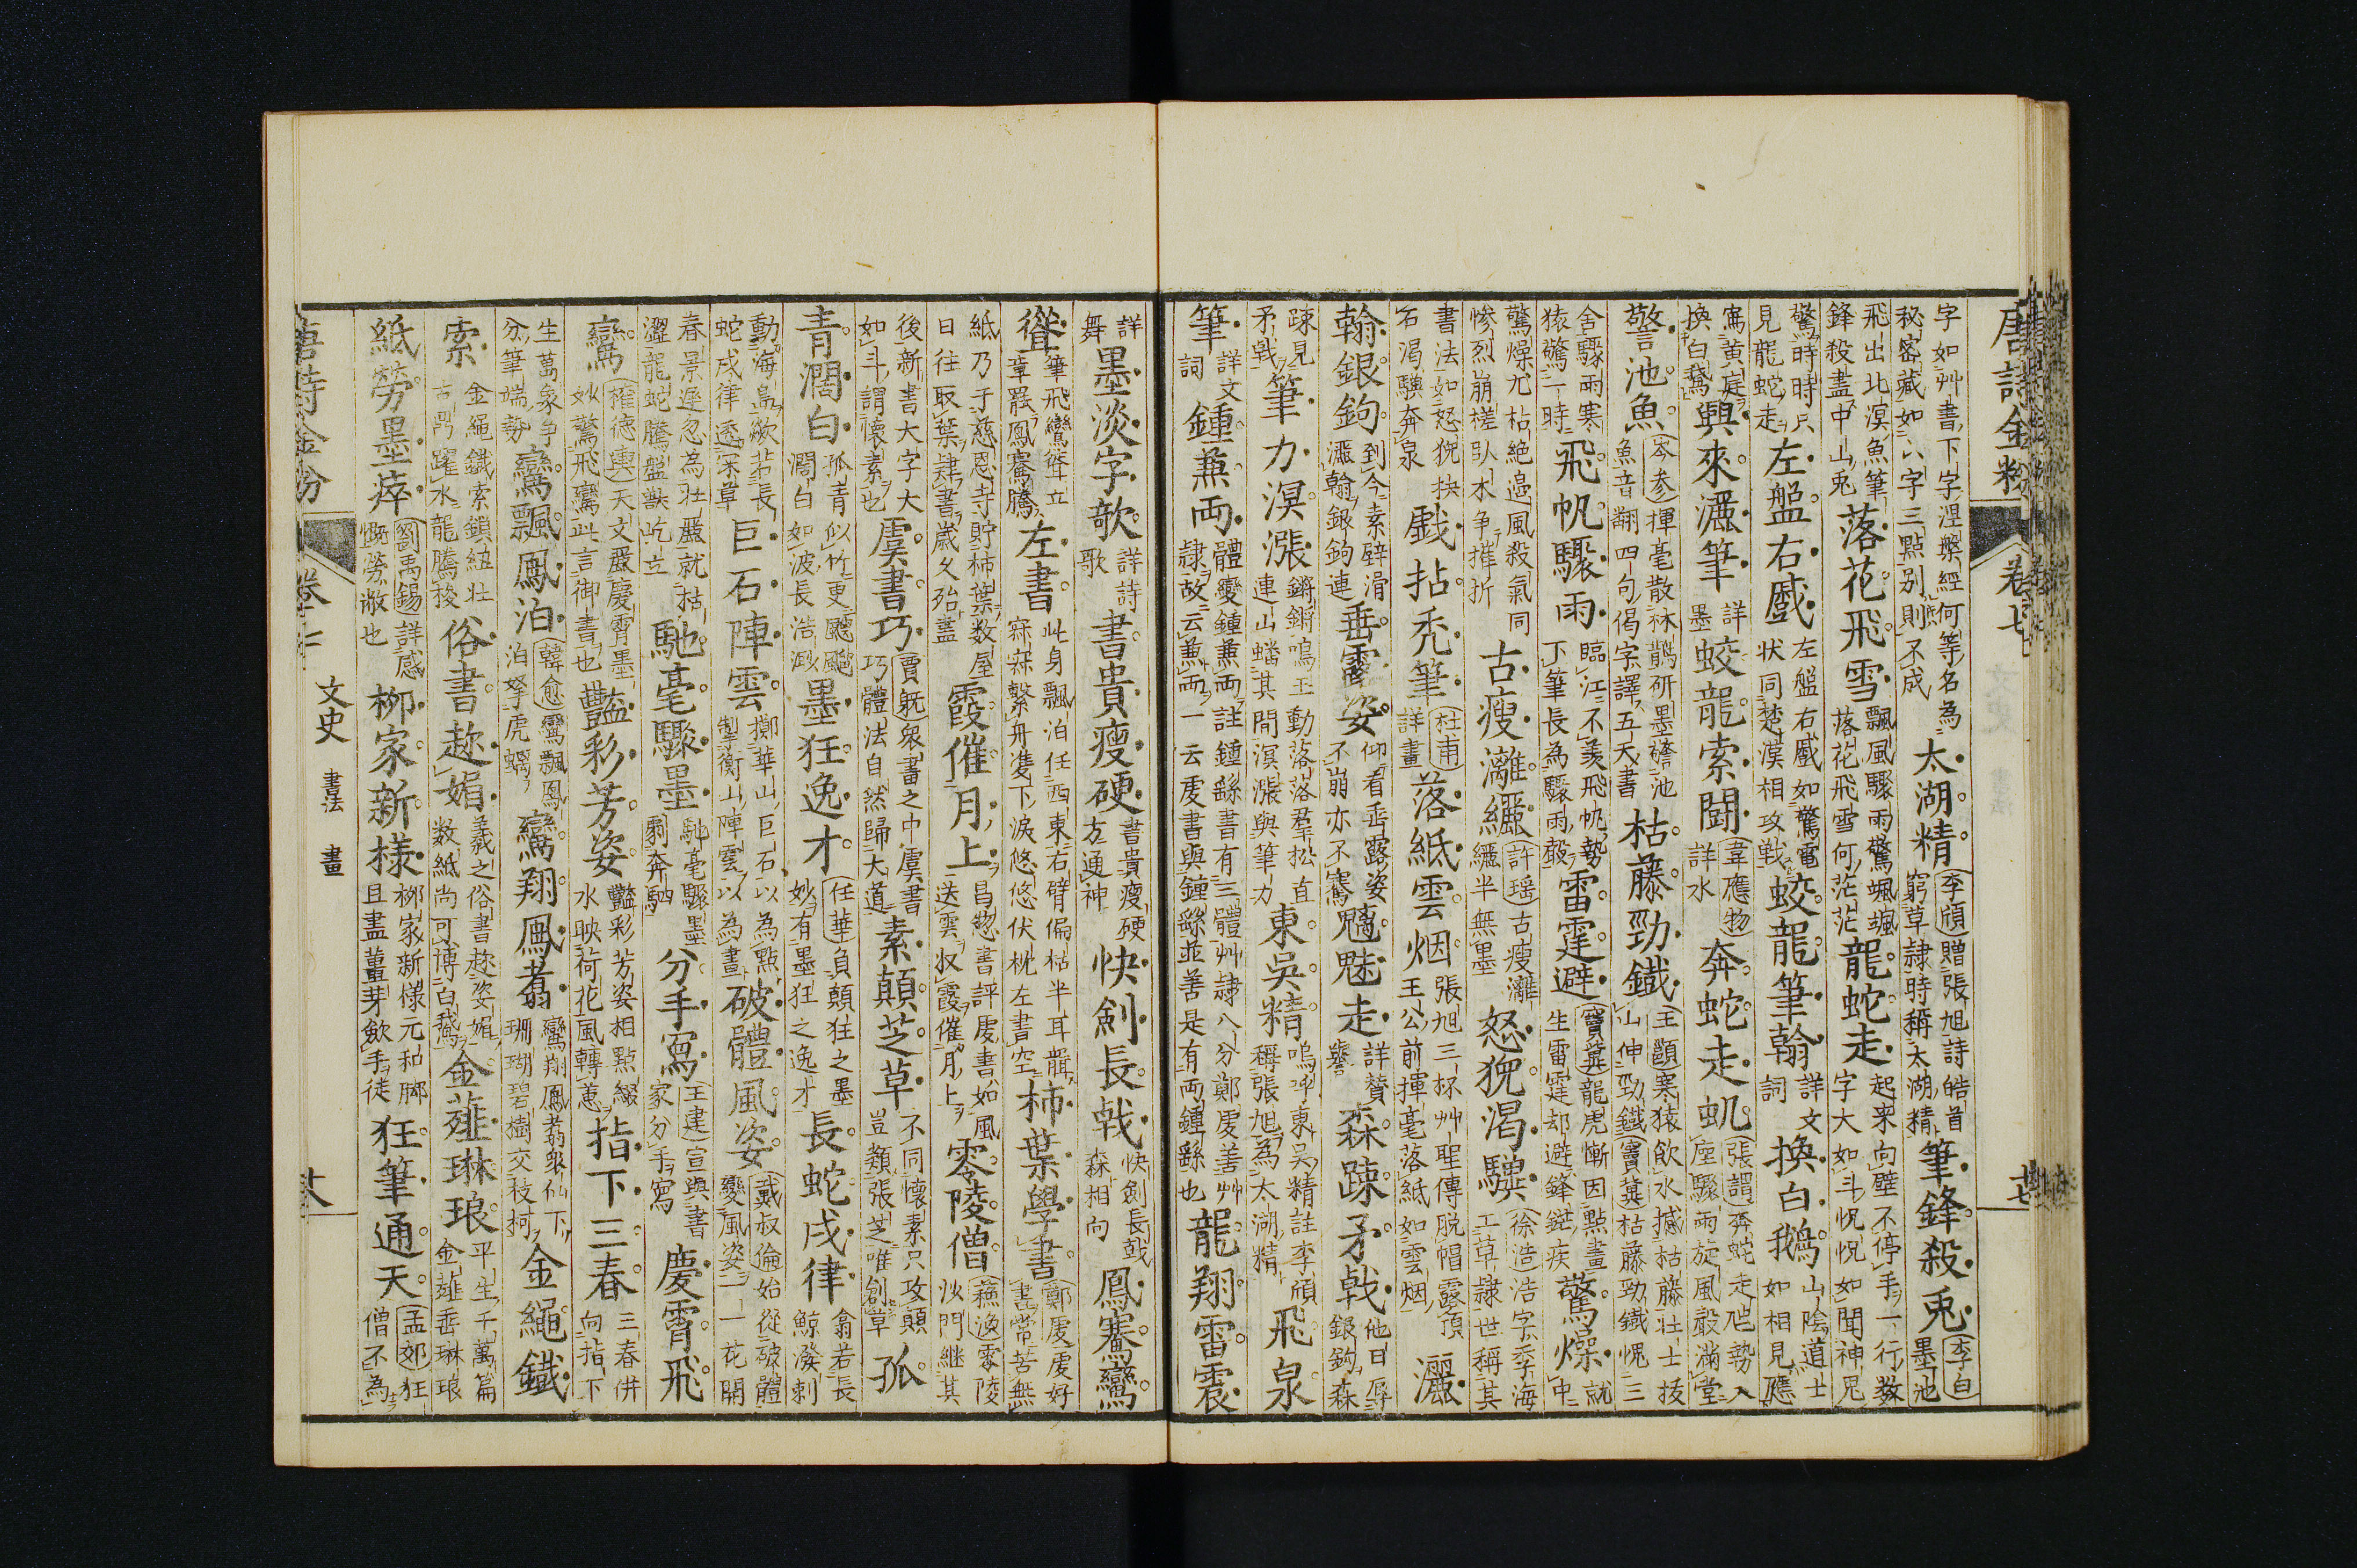 唐詩金粉 卷七 十七
字如艸書下字涅槃經何等名為秘密藏如∴字三點別則不成 太湖精 李頎贈張旭詩皓首窮草隷時稱太湖精 筆鋒殺兎 李白墨池
飛出北溟魚筆鋒殺盡中山兎 落花飛雪 飄風驟雨驚颯颯落花飛雪何茫茫 龍蛇走 起来向壁不停手一行數字大如斗怳怳如聞神鬼
驚時時只見龍蛇走 左盤右蹙 左盤右蹙如驚電状同楚漢相攻戦 蛟龍筆翰 詳文詞 換白鵝 山陰道士如相見應
寫黄庭換白鵞 興來灑筆 詳墨 蛟龍索鬪 韋應物詳水 奔蛇走虺 張謂奔蛇走虺勢入座驟雨旋風殽滿堂
警池魚 岑参揮毫散林鵲研墨警池魚音翻四句偈字譯五天書 枯藤勁鐵 王顗寒猿飲水撼枯藤壮士抜山伸勁鐵竇兾枯藤勁鐵愧三
舍驟雨寒猿驚一時 飛帆驟雨 臨江不羨飛帆勢下筆長為驟雨聲 雷霆避 竇兾龍虎慚因點畫生雷霆却避鋒鋩疾 驚燥 就中
驚燥尤枯絶邉風殺氣同惨烈崩槎臥木争摧折 古瘦漓纚 許瑶古瘦漓纚半無墨 怒猊渇驥 徐浩浩字季海工草隷世稱其
書法如怒猊抉石渇驥奔泉 戯拈禿筆 杜甫詳畫 落紙雲烟 張旭三杯艸聖傳脱帽露頂王公前揮毫落紙如雲烟 灑
翰銀鉤 到今素壁滑灑翰銀鉤連 垂露姿 仰看垂露姿不崩亦不騫 魑魅走 詳賛譽 森踈矛戟 他日辱銀鉤森
踈見矛戟 筆力溟漲 鏘鏘鳴玉動落落羣松直連山蟠其間溟漲與筆力 東吳精 嗚呼東吳精註李頎稱張旭為太湖精 飛泉
筆 詳文詞 鍾兼両 體變鍾兼両註鍾繇書有三體艸隷八分鄭虔善艸隷故云兼両一云虔書與鍾繇並善是有両鍾繇也 龍翔雷震
詳舞 墨淡字欹 詳詩歌 書貴瘦硬 書貴瘦硬方通神 快劍長戟 快劍長戟森相向 鳳騫鸞
聳 筆飛鸞聳立章罷鳳騫騰 左書 此身飄泊任西東右臂偏枯半耳聾寂寂繫舟雙下淚悠悠伏枕左書空 柿葉學書 鄭虔虔好書常苦無
紙乃于慈恩寺貯柿葉数屋日往取葉肄書歳久殆盡 霞催月上 呂惣書評虔書如風送雲収霞催月上 零陵僧 蘓渙零陵沙門継其
後新書大字大如斗謂懐素也 虞書巧 賈躭衆書之中虞書巧體法自然歸大道 素顛芝草 不同懐素只攻顛豈類張芝唯創草 孤
青濶白 孤青似竹更飀飀濶白如波長浩渺 墨狂逸才 任華負顛狂之墨妙有墨狂之逸才 長蛇戌律 翕若長鯨潑剌
動海島欻若長蛇戌律透深草 巨石陣雲 擲華山巨石以為點掣衡山陣雲以為畫 破體風姿 戴叔倫始従破體變風姿一一花開
春景遅忽為壮麗就枯澀龍蛇騰盤獸屹立 馳毫驟墨 馳毫驟墨劇奔駟 分手寫 王建宣與書家分手寫 慶霄飛
鸞 權徳輿天文嚴慶霄墨妙驚飛鸞此言御書也 豔彩芳姿 豔彩芳姿相點綴水映荷花風轉蕙 指下三春 三春併向指下
生萬象争分筆端勢 鸞飄鳳泊 韓愈鸞飄鳳泊拏虎螭 鸞翔鳳翥 鸞翔鳳翥衆仙下珊瑚碧樹交枝柯 金繩鐵
索 金繩鐵索鎖紐壮古鼎躍水龍騰梭 俗書趂媚 羲之俗書趂姿媚数紙尚可博白鵞 金薤琳琅 平生千萬篇金薤垂琳琅
紙勞墨瘁 劉禹錫詳感慨勞敝也 栁家新様 栁家新様元和脚且盡薑芽斂手徒 狂筆通天 孟郊狂僧不為
唐詩金粉 卷七 文史 書法 畫 十八